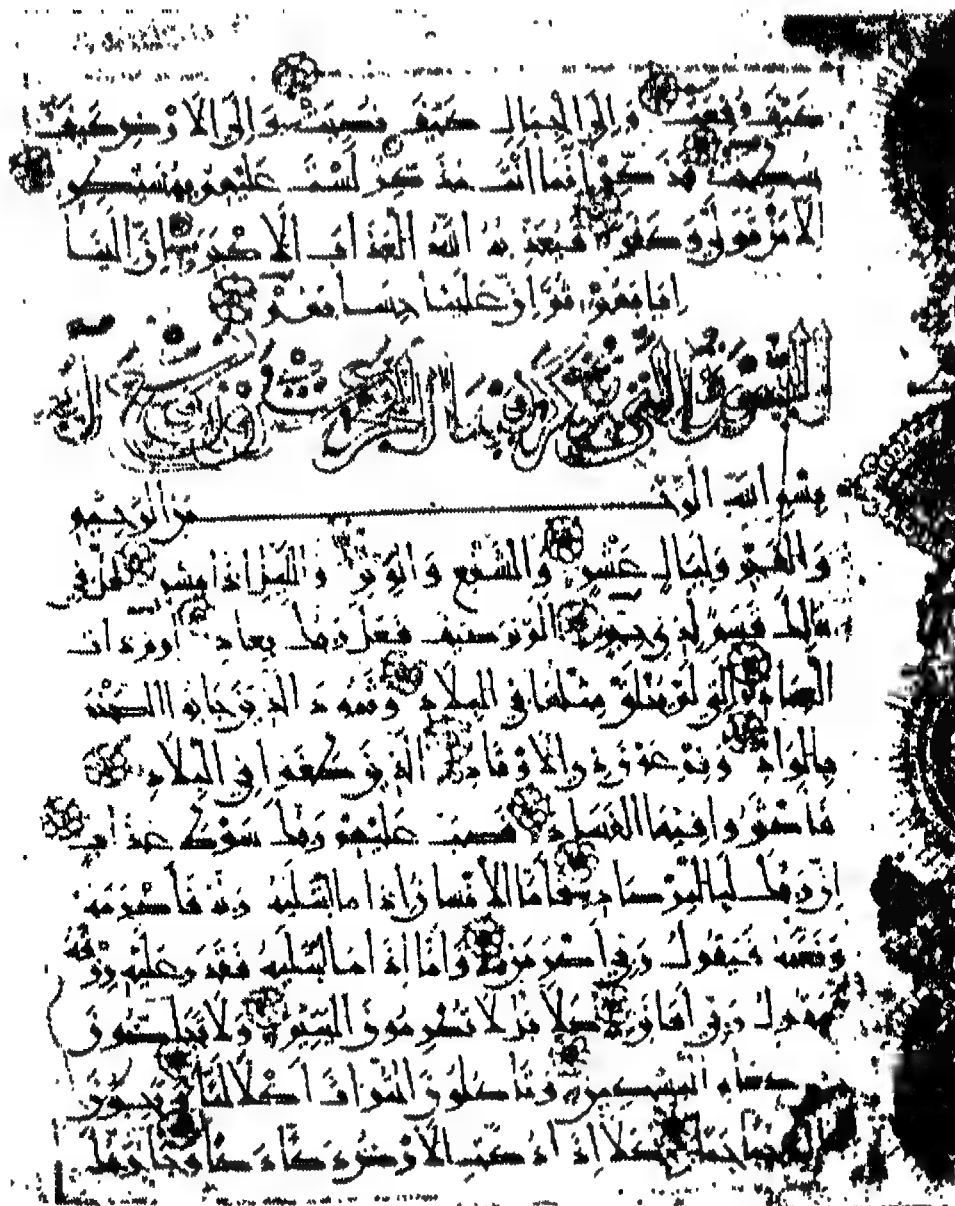 كيف رفعت وإلى الجبال كيف نصبت وإلى الأرض كيف
سطحت فذكر إنما أنت مذكر لست عليهم بمسيطر
إلا من تولى وكفر فيعذبه الله العذاب الأكبر إن إلينا
إيابهم ثم إن علينا حسابهم
بسم الله الرحمن الرحيم
والفجر وليال عشر والشفع والوتر والليل إذا يسر هل في
ذلك قسم لذي حجر ألم تر كيف فعل ربك بعاد إرم ذات
العماد التي لم يخلق مثلها في البلاد وثمود الذين جابوا الصخر
بالواد وفرعون ذي الأوتاد الذين طغوا في البلاد
فأكثروا فيها الفساد فصب عليهم ربك سوط عذاب
إن ربك لبالمرصاد فأما الإنسان إذا ما ابتليه ربه فأكرمه
ونعمه فيقول ربي أكرمن وأما إذا ما ابتليه فقدر عليه رزقه
فيقول ربي أهانن كلا بل لا تكرمون اليتيم ولا تحاضون
على طعام المسكين وتأكلون التراث أكلا لما وتحبون
المال حبا جما كلا إذا دكت الأرض دكا دكا وجاء ربك